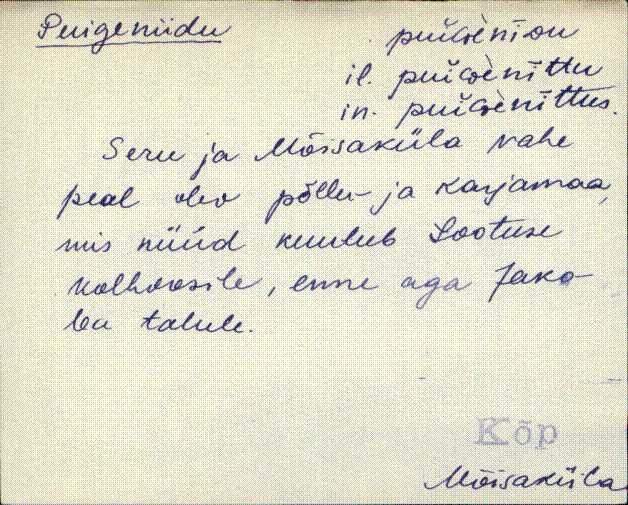 Puigeniidu
puiGenīDu
il. puiGenīttu
in. puiGenīttus.
Seru ja Mõisaküla vahe
peal olev põllu- ja karjamaa,
mis nüüd kuulub Lootuse
kolhoosile, enne aga Jako-
ba talule.
Kõp
Mõisaküla